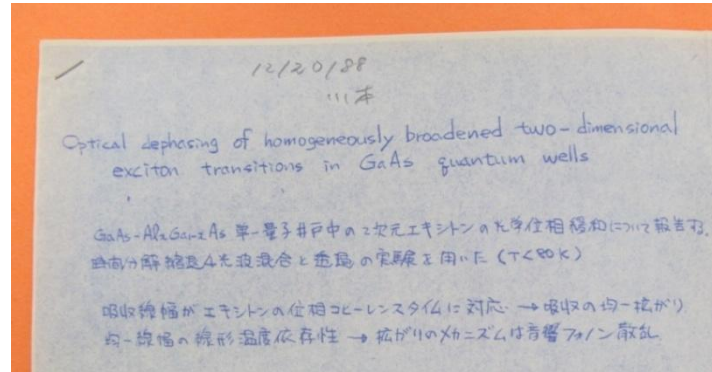 12/20/88
川本
Optical dephasing of homogeneously broadened two-dimensional
exciton transitions in GaAs quantum wells
GaAs-AlxGa1-xAs 単一量子井戸中の2次元エキシトンの光学位相緩和について報告する。
時間分解縮退4光波混合と透過の実験を用いた (T<80K)
吸収線幅がエキシトンの位相コヒーレンスタイムに対応 → 吸収の均一拡がり
均一線幅の線形温度依存性 → 拡がりのメカニズムは音響フォノン散乱